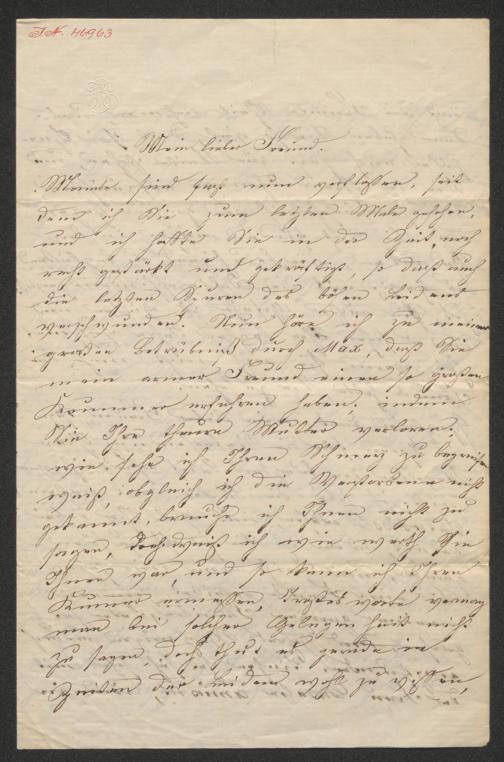 I.N. 46963
Mein lieber Freund.
Monate sind fast nun verflossen, seit
dem ich Sie zum letzten Male gesehen,
und ich hoffte Sie in der Zeit, noch
recht gestärkt und gekräftigt, so daß auch
die letzten Spuren des bösen Leidens
verschwunden. Nun höre ich zu meiner
großen Betrübniß durch Max, daß Sie
mein armer Freund einen so großen
Kummer erfahren haben, indem
Sie Ihre theure Mutter verloren,
wie sehr ich Ihren Schmerz zu begreifen
weiß, obgleich ich die Verstorbene nicht
gekannt, brauche ich Ihnen nicht zu
sagen, doch weiß ich wie werth Sie
Ihnen war, und so kann ich Ihren
Kummer ermessen, Trostesworte vermag
man bei solcher Gelegenheit nicht
zu sagen, doch thut es gerade in
Zeiten der wohl zu wissen,